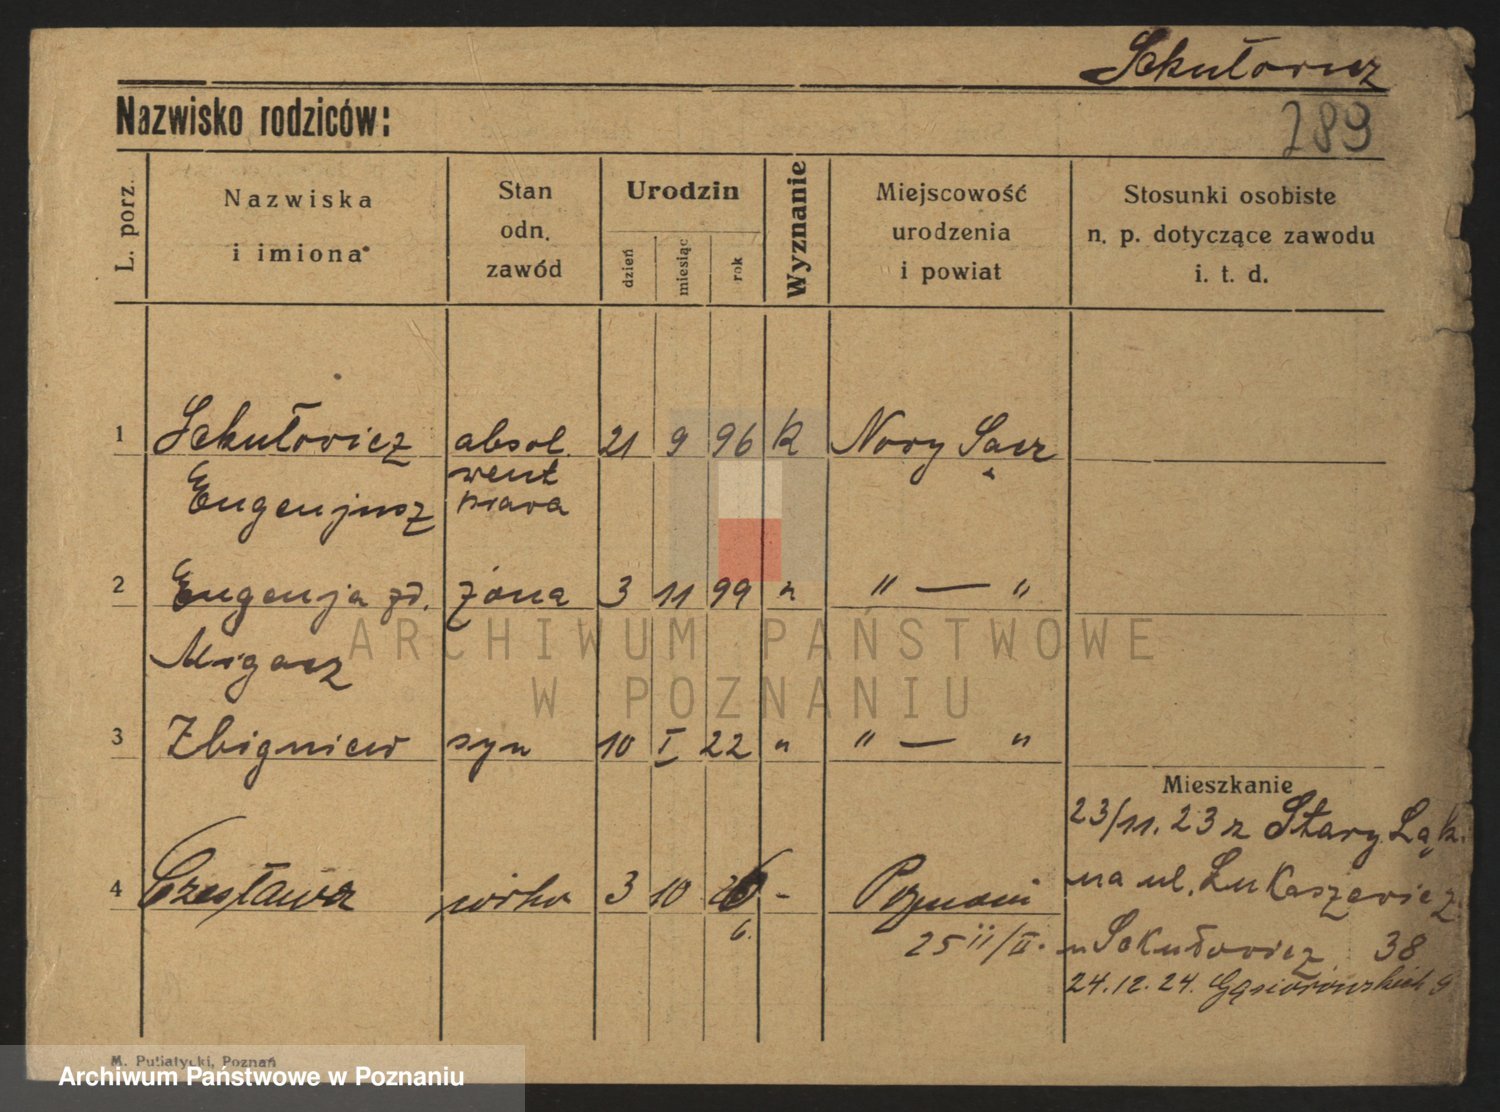 Sekułowicz
Nazwisko rodziców:
289
L. porz.
Nazwiska
i imiona
Stan
odn.
zawód
Urodzin
dzień
miesiąc
rok
Wyznanie
Miejscowość
urodzenia
i powiat
Stosunki osobiste
n. p. dotyczące zawodu
i. t. d.
1 Sekułowicz absol. 21 9 96 k Nowy Sącz
went
Eugenjusz prawa
2 Eugenja zd. żona 3 11 99 " " — "
Migacz
3 Zbigniew syn 10 I 22 " " — "
Mieszkanie
23/11. 23 z Stary Łąk.
4 Czesława córka 3 10 26 - Poznań
6.
na ul. Łukaszewicz
25 ii/II.
u Sekułowicz 38
24.12.24. Gąsiorowskich 9
M. Putiatycki, Poznań
ARCHIWUM PAŃSTWOWE
W POZNANIU
Archiwum Państwowe w Poznaniu